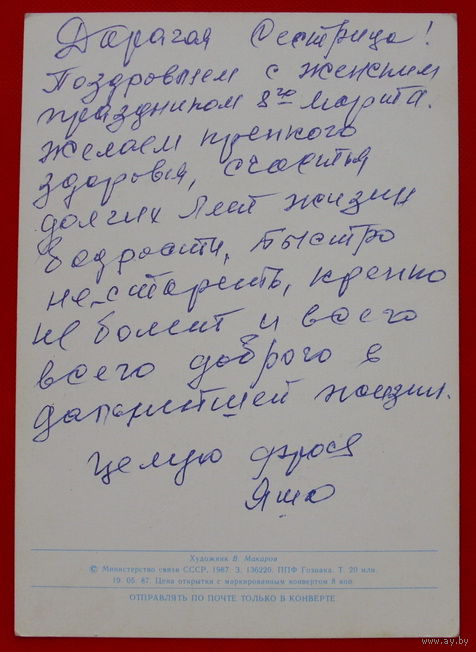 Дарагая Сестрица!
Поздровляем с женским
праздником 8го марта.
желаем крепкого
здоровья, счастья
долгих лет жизни
бодрости, быстро
не стареть, крепко
не болеть и всего
всего доброго в
дальнейшей жизни.
Целую фрося
Яша
Художник В. Макаров
© Министерство связи СССР, 1987. З. 136220. ППФ Гознака. Т. 20 млн.
19. 05. 87. Цена открытки с маркированным конвертом 8 коп.
ОТПРАВЛЯТЬ ПО ПОЧТЕ ТОЛЬКО В КОНВЕРТЕ
www.ay.by